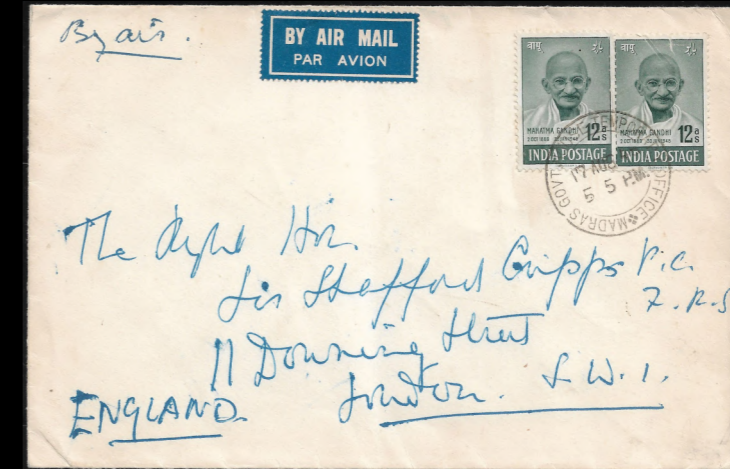 By air.
BY AIR MAIL
PAR AVION
वायु
MAHATMA GANDHI
12 as
INDIA POSTAGE
वायु
MAHATMA GANDHI
12 as
INDIA POSTAGE
MADRAS GOVT OFFICE
17 AUG
5 5 P.M.
The Right Hon.
Sir Stafford Cripps P.C.
F.R.S
11 Downing Street
London. S.W.1.
ENGLAND.